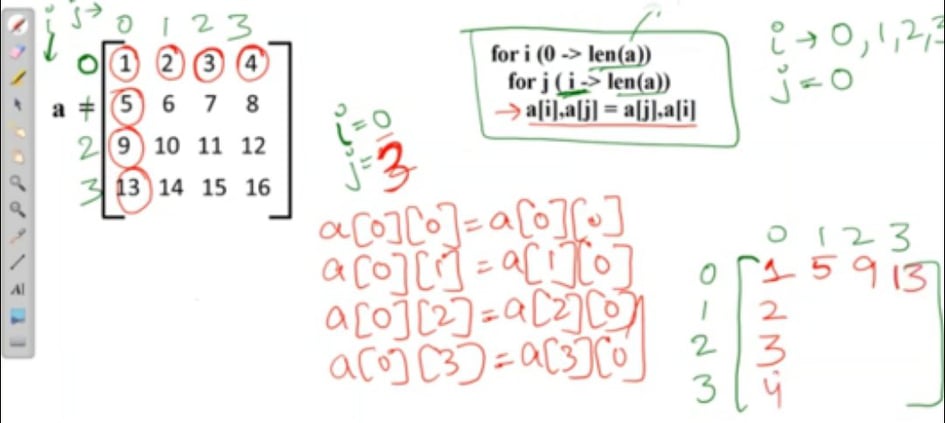 i j→ 0 1 2 3
0 1 2 3 4
a = 5 6 7 8
2 9 10 11 12
3 13 14 15 16
for i (0 -> len(a))
for j ( i -> len(a))
→ a[i],a[j] = a[j],a[i]
i → 0,1,2,3
j = 0
i = 0
j = 3
a[0][0] = a[0][0]
a[0][1] = a[1][0]
a[0][2] = a[2][0]
a[0][3] = a[3][0]
0 1 2 3
0 1 5 9 13
1 2
2 3
3 4
AI